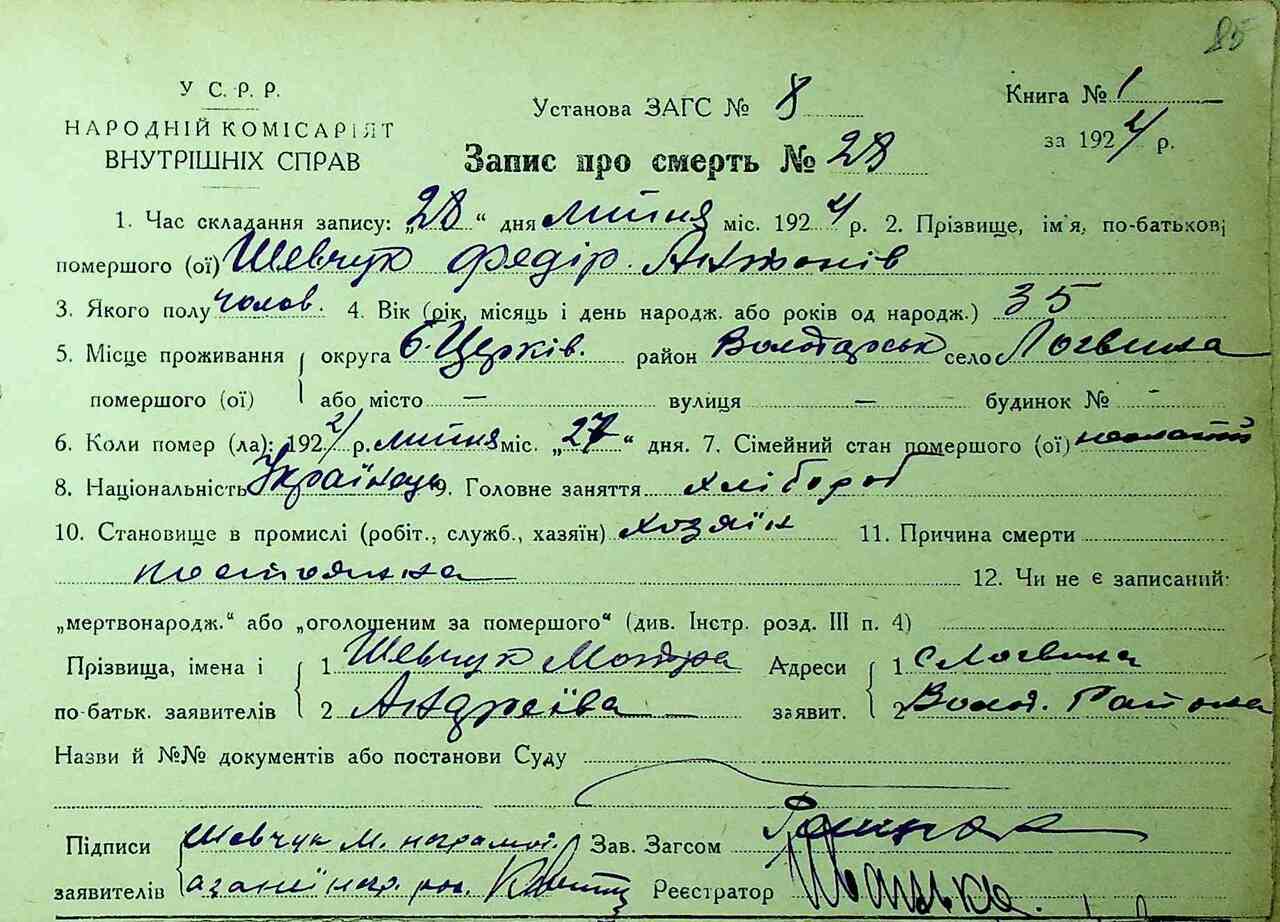 85
У С. Р. Р.
НАРОДНІЙ КОМІСАРІЯТ
ВНУТРІШНІХ СПРАВ
Установа ЗАГС № 8
Книга № 1
за 1924 р.
Запис про смерть № 28
1. Час складання запису: „28“ дня липня міс. 1924 р. 2. Прізвище, ім'я, по-батькові
помершого (ої) Шевчук Федір Антонів
3. Якого полу чолов. 4. Вік (рік, місяць і день народж. або років од народж.) 35
5. Місце проживання округа Б. Церків. район Володарськ село Логвина
помершого (ої) або місто — вулиця — будинок № -
6. Коли помер (ла): 1924 р. липня міс. „27“ дня. 7. Сімейний стан помершого (ої)
8. Національність Українець 9. Головне заняття хлібороб
10. Становище в промислі (робіт., служб., хазяїн) хозяїн 11. Причина смерти
12. Чи не є записаний:
„мертвонародж.“ або „оголошеним за помершого“ (див. Інстр. розд. III п. 4)
Прізвища, імена і 1 Шевчук Мотря Адреси 1 с Логвина
по-батьк. заявителів 2 Андреїва — заявит. 2 Волод. Района
Назви й №№ документів або постанови Суду
Підписи Шевчук М. неграмот. Зав. Загсом
заявителів Реєстратор